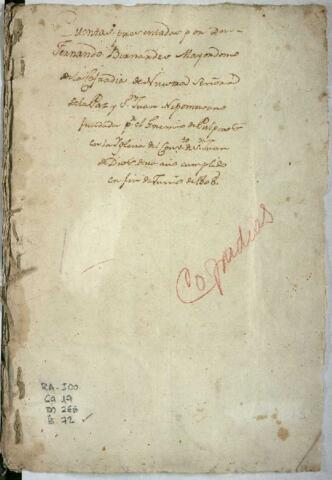 Quentas presentadas por Don
Fernando Bernardes Mayordomo
de la Cofradia de Nuestra Señora
de la Paz y Sn Juan Nepomuceno
fundada pr el Gremio de
en la Yglesia del Convto de Sn Juan
de Dios, de un año cumplido
en fin de Junio de 1808.
Cofradias
RA-JOO
Ca 19
D 266
f. 72